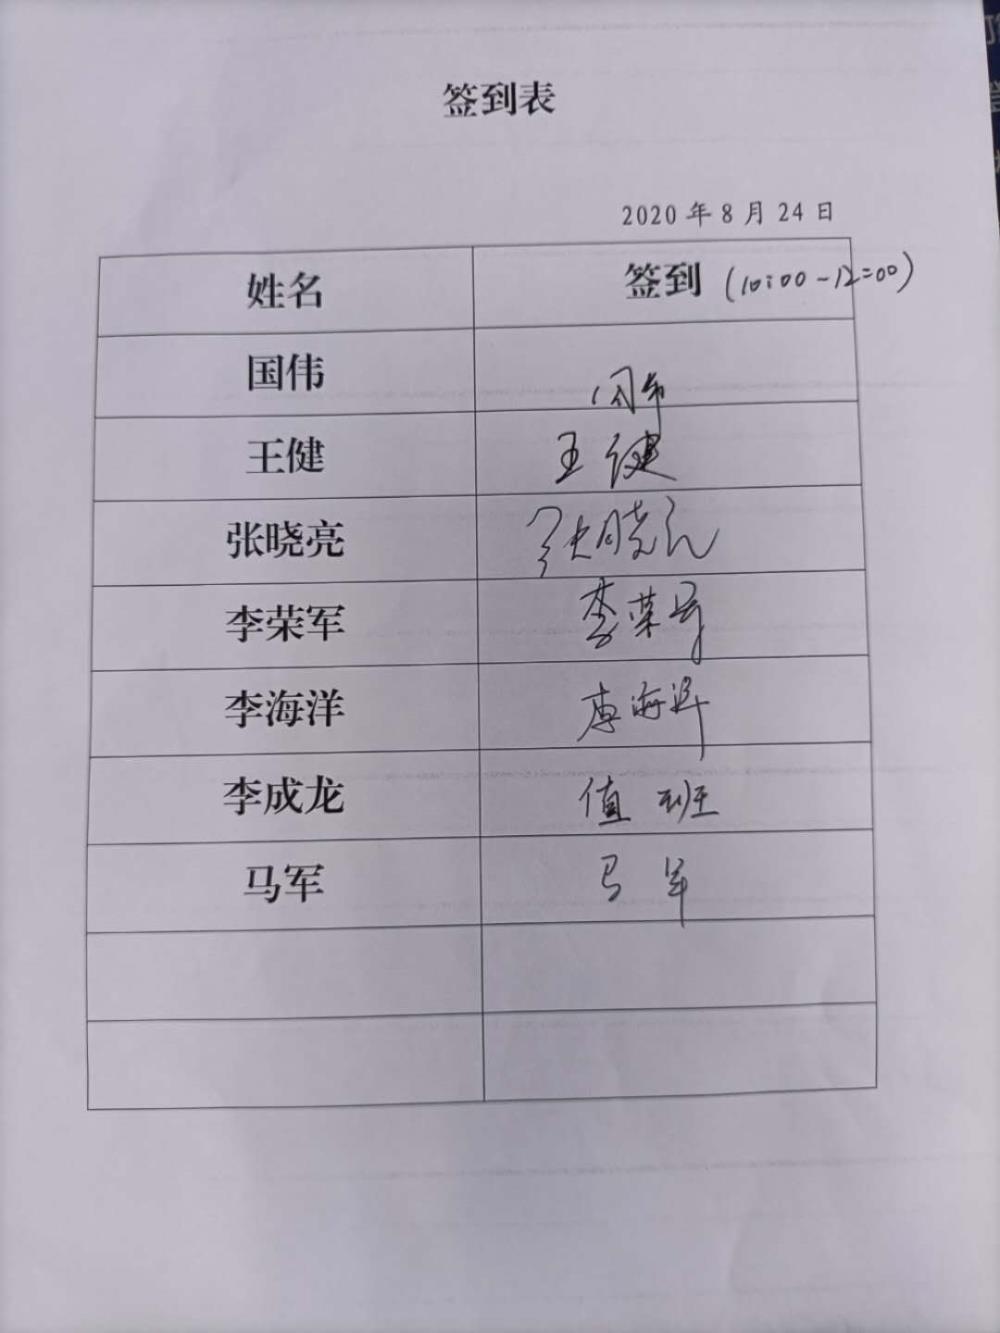 签到表
2020 年 8 月 24 日
姓名 签到 (10:00-12:00)
国伟 国伟
王健 王健
张晓亮 张晓亮
李荣军 李荣军
李海洋 李海洋
李成龙 值班
马军 马军